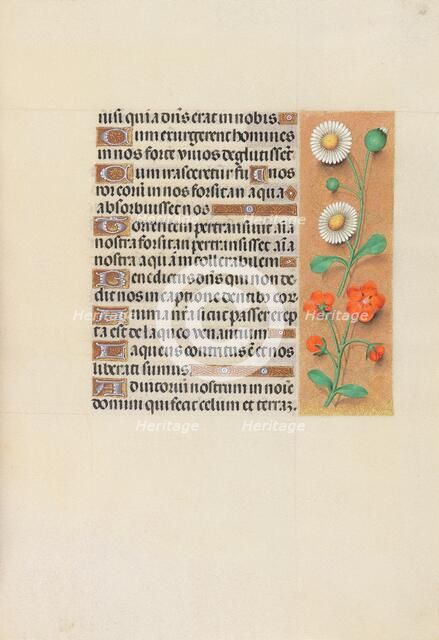 nisi quia dñs erat in nobis.
Cum exurgerent homines
in nos forte vivos deglutisset
Cum irasceretur fu E nos
ror eorum in nos forsitan aqua
absorbuisset nos
Torrentem pertransivit aīa
nostra forsitan pertransisset aīa
nostra aquam intollerabilem
Benedictus dñs qui non de
dit nos in captione dentib eor
Anima nr̄a sicut passer erep
ta est de laqueo venantium
Laqueus contritus ē et nos
liberati sumus
Adiutorium nostrum in noīe
domini qui fecit celum et terrā
Heritage Heritage Heritage Heritage
Heritage Heritage Heritage